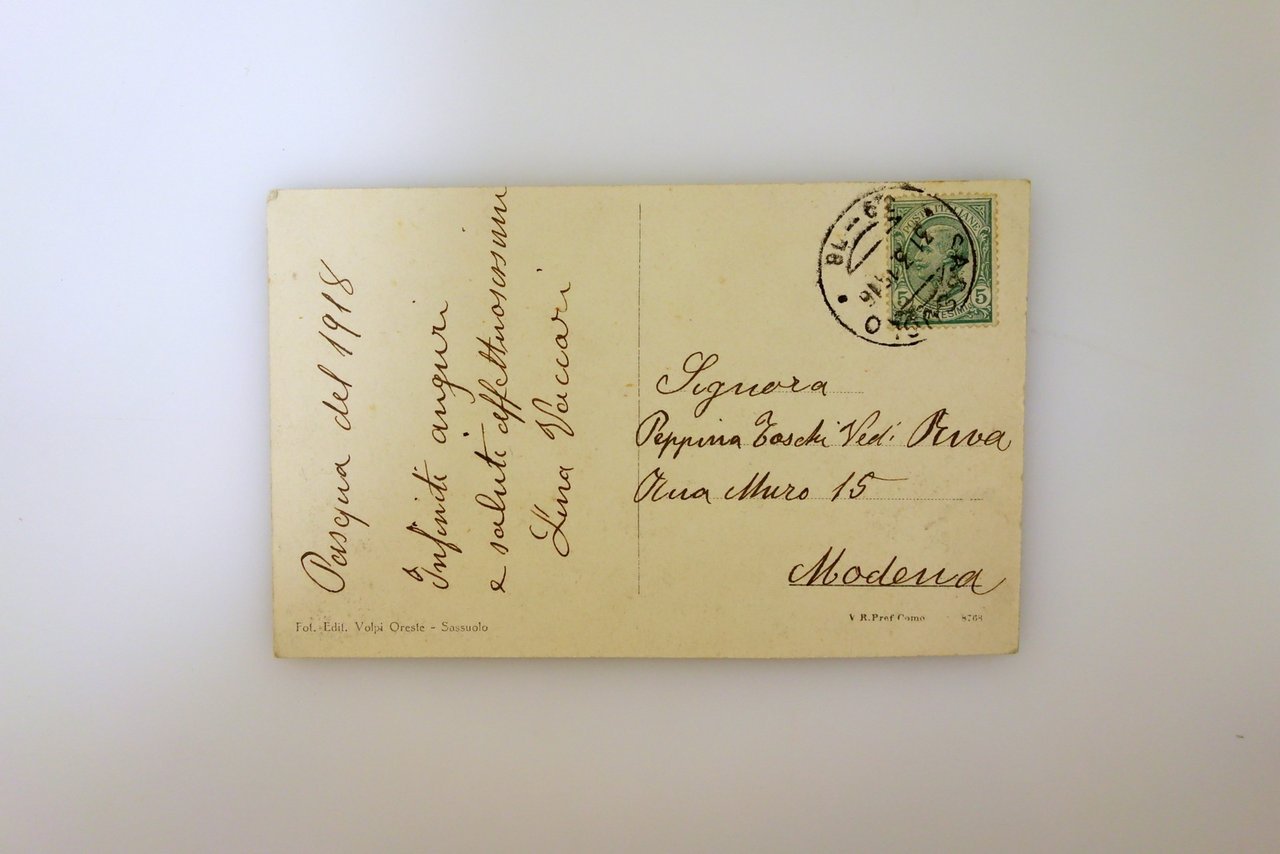 Pasqua del 1918
Infiniti auguri
e saluti affettuosissimi
Lina Vaccari
Fot. Edit. Volpi Oreste - Sassuolo
POSTE ITALIANE
5 5
CENTESIMI
Signora
Peppina Toschi Ved: Riva
Rua Muro 15
Modena
V. R. Pref Como 8768